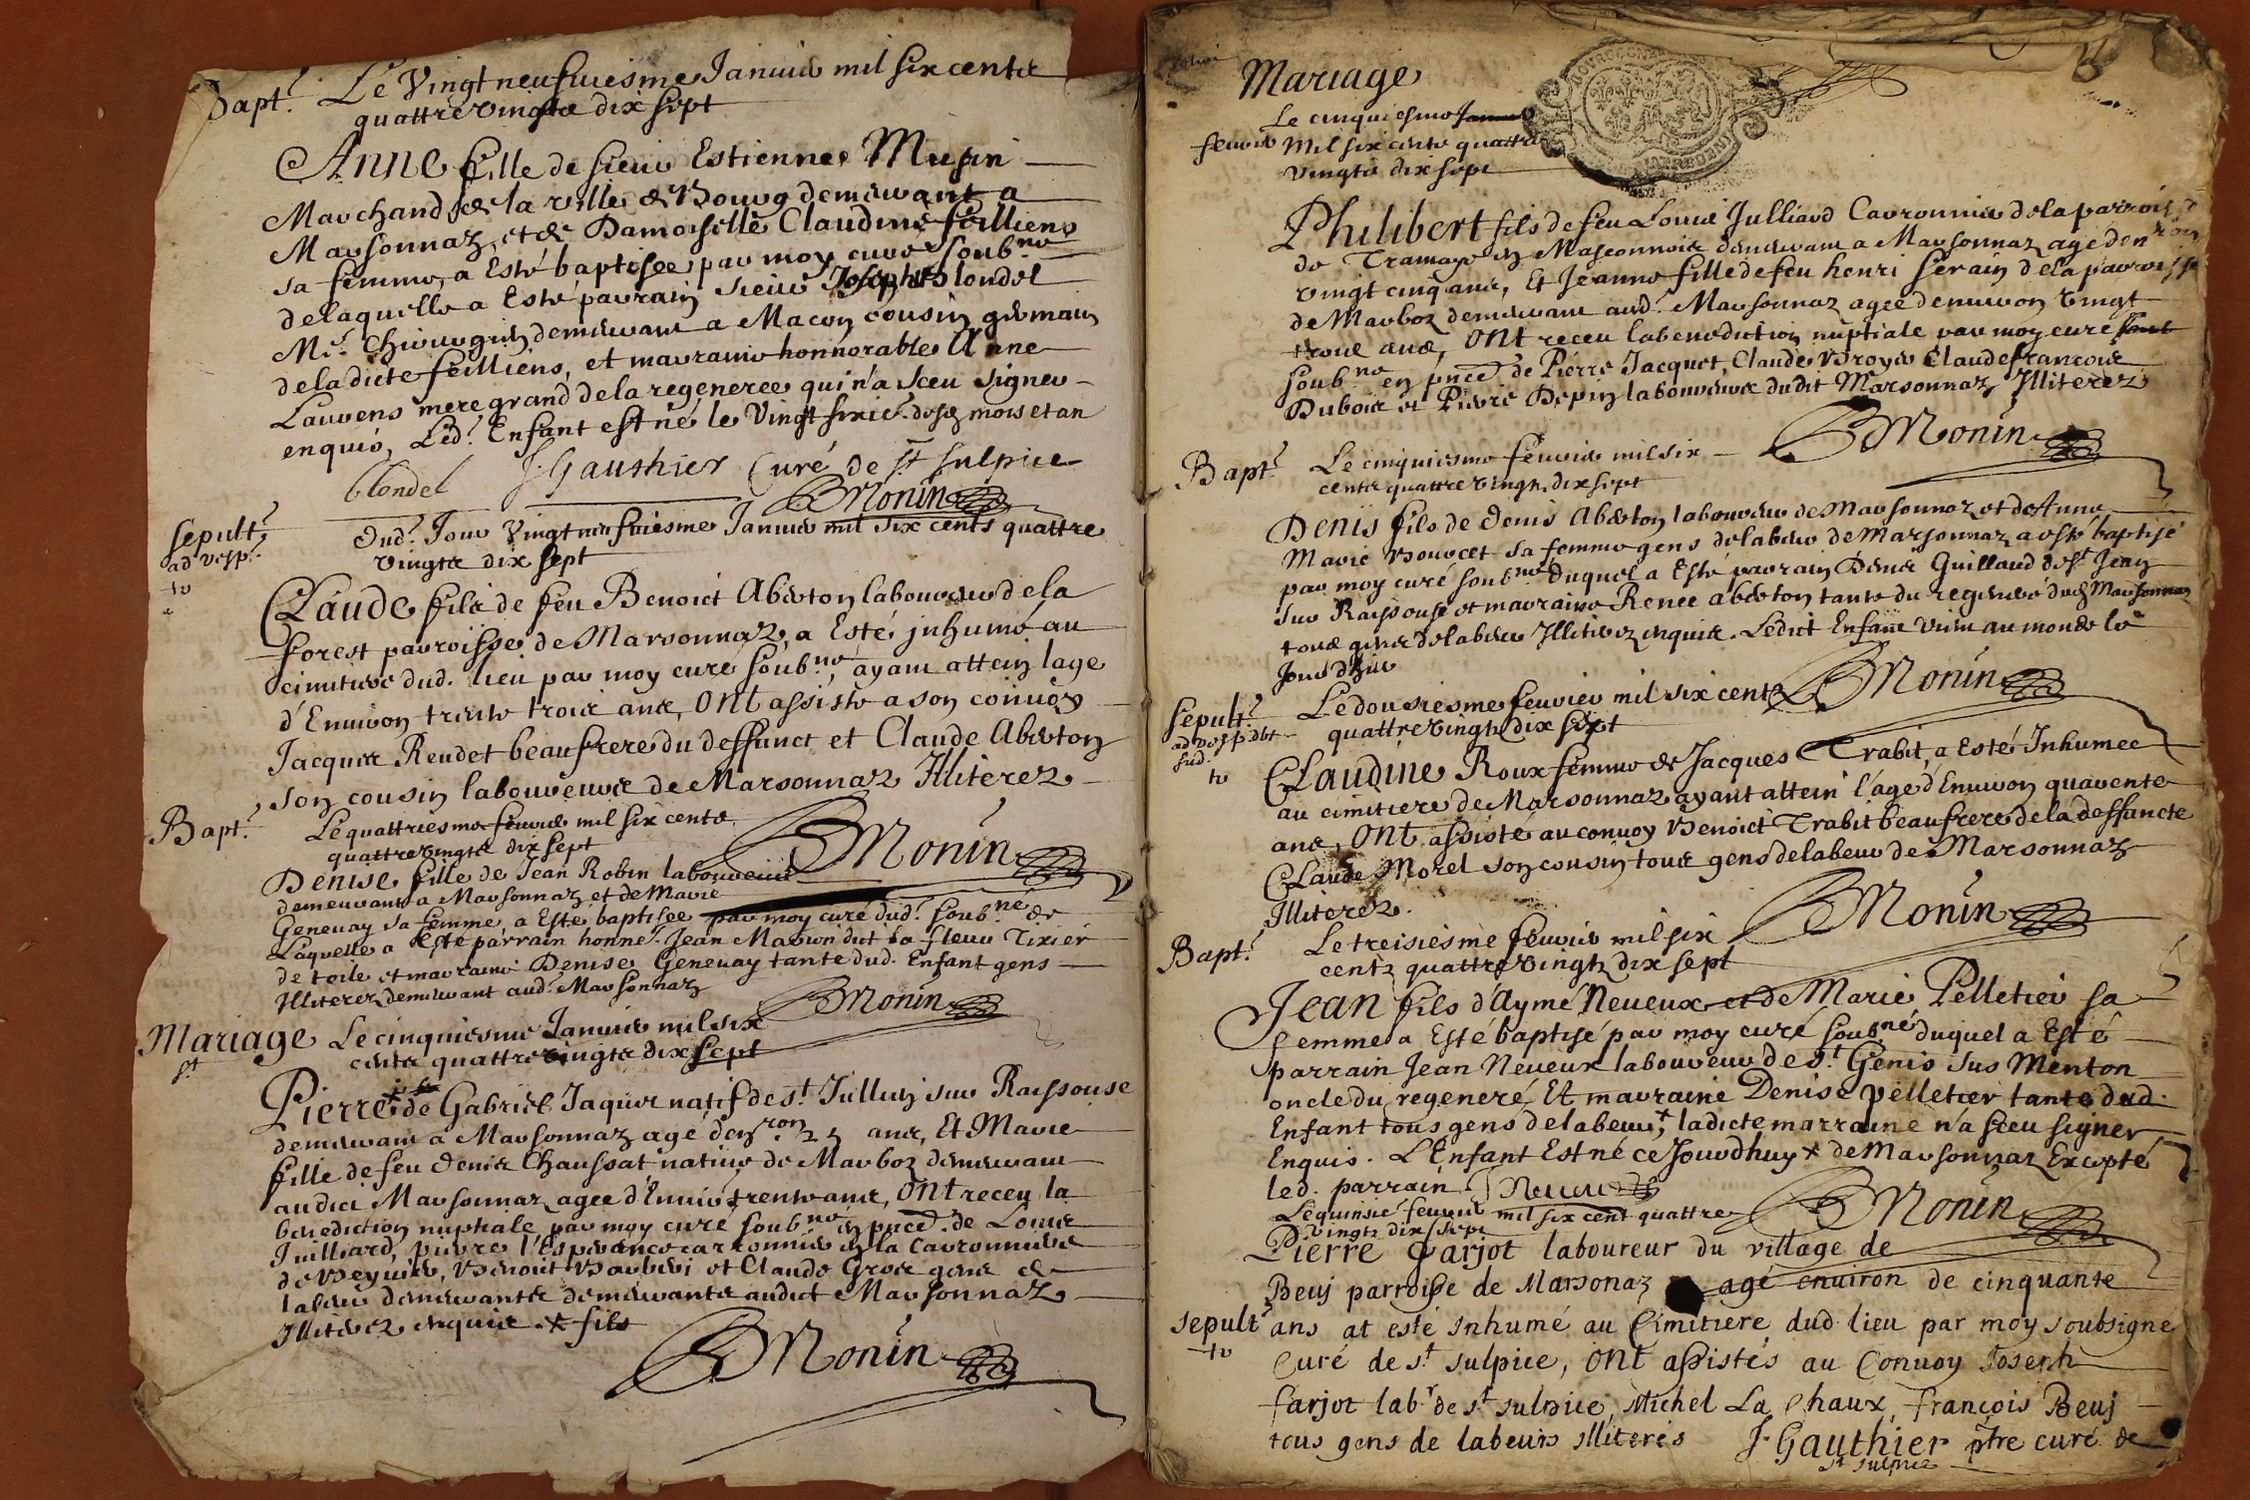 Bapt.
Le Vingt neufiuiesme Januier mil six cents
quattre vingts dix sept
Anne fille de sieur Estienne Musin
Marchand de la ville de Bourg demeurant a
Marsonnaz, et de Damoiselle Claudine feilliens
sa femme, a Esté baptisee par moy curé soub.né
delaquelle a Esté parrain sieur Joseph Blondel
Me. Chirurgien demeurant a Macon cousin germain
dela dicte feilliens, et marraine honnorable Anne
Laurens mere grand dela regeneree qui n'a sceu signer
enquis, Led. Enfant est né le vingt sixie. desd mois et an
blondel J. Gauthier Curé de st sulpice
BMonin
Sepult.
ad vesp.
Dud. Jour Vingt neufuiesme Januier mil six cents quattre
vingts dix sept
Claude fils de feu Benoict Aberton laboureur dela
forest parroisse de Marsonnaz, a Esté inhumé au
cimitiere dud. lieu par moy curé soub.né, ayant attein lage
d'Enuiron trente trois ans, Ont assisté a son conuoy
Jacques Reudet beaufrere du deffunct et Claude Aberton
son cousin laboureurs de Marsonnaz Illiterez
Bapt.
Le quattriesme feurier mil six cents
quattre vingts dix sept
BMonin
Denise fille de Jean Robin laboureur
demeurant a Marsonnaz et de Marie
Geneuay sa femme, a Esté baptisee par moy curé dud. soub.né de
Laquelle a esté parrain honne. Jean Marion dict la fleur Tixier
de toile et marraine Denise Geneuay tante dud. Enfant gens
Illiterez demeurant aud. Marsonnaz
BMonin
Mariage
st
Le cinquiesme Januier mil six
cents quattre vingts dix sept
Pierre de Gabriel Jaquis natif de st. Jullien sur Raissouse
demeurant a Marsonnaz agé d'en.ron 25 ans, Et Marie
fille de feu Denis Chaussat natiue de Marboz demeurant
audict Marsonnaz agee d'Enuiro trente ans, Ont receu la
benediction nuptiale par moy curé soub.né en pnce. de Louis
Juilliard, pierre l'Esperance carronnier en la Carronniere
de Beyuier, Benoict Barberi et Claude Gros gens de
labeur demeurants demeurants audict Marsonnaz
Illiterez enquis. x fils
BMonin
Mariage
Le cinquiesme Januier
feurier Mil six cents quattre
vingts dix sept
Philibert fils de feu Louis Julliard Carronnier dela parroisse
de Tramaye en Masconnois demeurant a Marsonnaz agé d'en.ron
vingt cinq ans, Et Jeanne fille de feu henri serain dela parroisse
de Marboz demeurant aud. Marsonnaz agee denuiron vingt
trois ans, Ont receu la benediction nuptiale par moy curé
soub.né en pnce. de Pierre Jacquet, Claude Broyer Claude francois
Dubois et Pierre Depin laboureurs dudit Marsonnaz Illiterez
BMonin
Bapt.
Le cinquiesme feurier mil six
cents quattre vingts dix sept
Denis fils de Denis Aberton laboureur de Marsonnaz et de Anne
Marie Bourcet sa femme gens de labeur de Marsonnaz a esté baptisé
par moy curé soub.né duquel a Esté parrain Denis Guillaud de st Jean
sur Raissouse et marraine Renee aberton tante du regeneré dud Marsonnaz
tous gens de labeur Illiterez enquis. Ledict Enfant venu au monde le
Jour d'hier
BMonin
Sepult.
Le dousiesme feurier mil six cents
quattre vingts dix sept
Claudine Roux femme de Jacques Trabit, a Esté Inhumee
au cimitiere de Marsonnaz ayant attein l'age d'Enuiron quarente
ans, Ont assisté au conuoy Benoict Trabit beaufrere dela deffuncte
Claude Morel son cousin tous gens de labeur de Marsonnaz
Illiterez.
BMonin
Bapt.
Le treisiesme feurier mil six
cents quattre vingts dix sept
Jean fils d'Aymé Neueux et de Marie Pelletier sa
femme a Esté baptisé par moy curé soub.né duquel a Esté
parrain Jean Neueux laboureur de st. Genis sus Menton
oncle du regeneré, Et marraine Denise pelletier tante dud.
Enfant tous gens de labeur, x ladicte marraine n'a sceu signer
Enquis. L'Enfant Est né ce Jourdhuy x de Marsonnaz Excepté
led. parrain J Neueux
BMonin
Le quinsie. feurier mil six cent quattre
vingts dix sept
Pierre farjot laboureur du village de
Beuj parroisse de Marsonaz agé enuiron de cinquante
sepult
ans at esté Inhumé au Cimitiere dud lieu par moy soubsigné
Curé de st sulpice, Ont assistés au Conuoy Joseph
farjot labr de st sulpice, Michel La Chaux, françois Beuj
tous gens de labeurs illiterés J. Gauthier ptre curé de
st sulpice